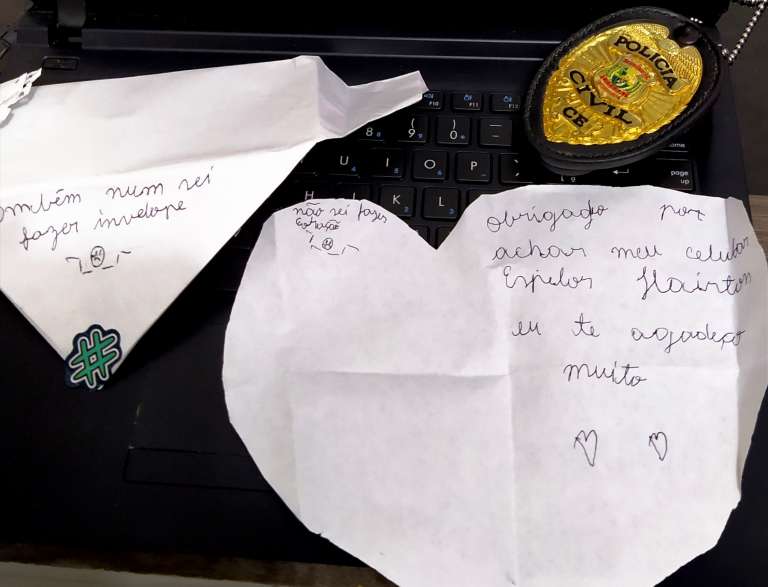 também num sei
fazer invelope
#
não sei fazer
coração
obrigado por
achar meu celular
Espelor Hairton
eu te agadeço
muito
POLICIA
CIVIL
CE
F10
F11
8
(
9
)
0
U
I
O
P
H
K
L
home
page
up